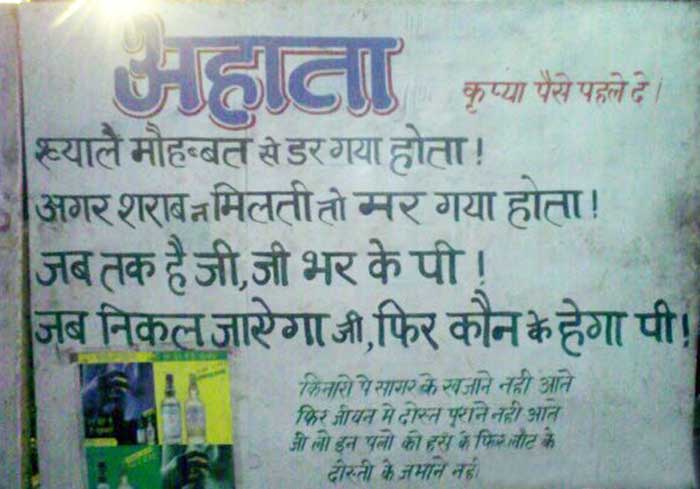 अहाता
कृप्या पैसे पहले दे।
ख्यालै मौहब्बत से डर गया होता!
अगर शराब न मिलती तो मर गया होता!
जब तक है जी, जी भर के पी!
जब निकल जाऐगा जी, फिर कौन के हेगा पी!
किनारो पे सागर के खजाने नही आते
फिर जीवन मे दोस्त पुराने नही आते
जी लो इन पलो को हस के फिर लौट के
दोस्ती के जमाने नही